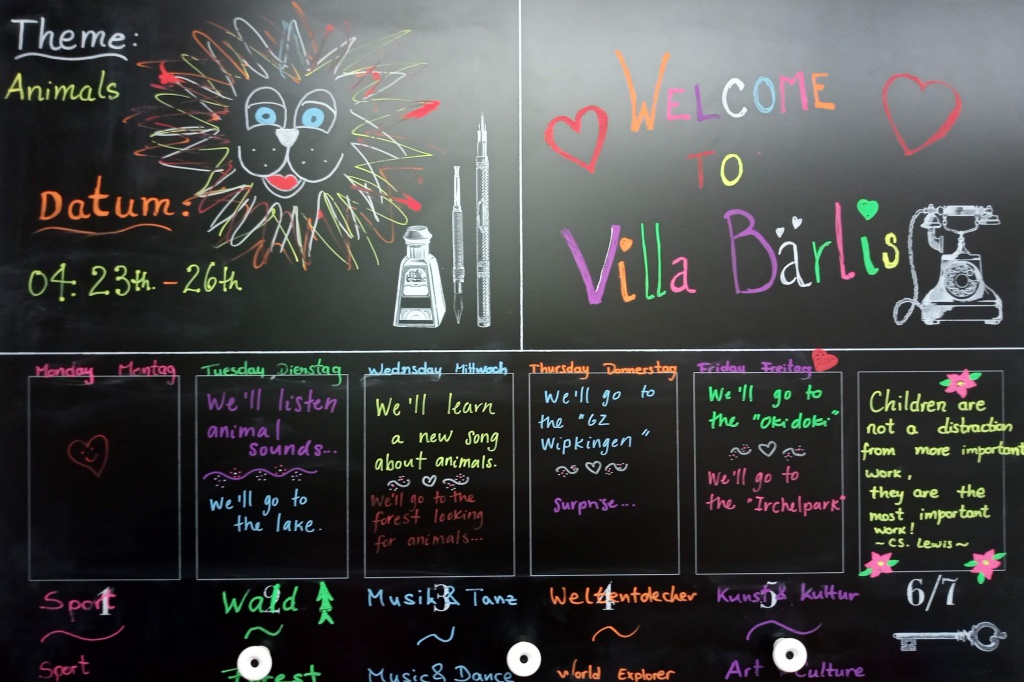 Theme:
Animals
Datum:
04. 23th. - 26th
WELCOME
TO
Villa Bärlis
Monday Montag
Tuesday Dienstag
We'll listen
animal
sounds...
We'll go to
the lake.
Wednsday Mittwoch
We'll learn
a new song
about animals.
We'll go to the
forest looking
for animals...
Thursday Donnerstag
We'll go to
the "GZ
Wipkingen"
Surprise...
Friday Freitag
We'll go to
the "Okidoki"
We'll go to
the "Irchelpark"
Children are
not a distraction
from more important
work,
they are the
most important
work!
~ CS. Lewis ~
Sport 1
Wald 2
Musik & Tanz 3
Weltentdecker 4
Kunst & Kultur 5
6/7
Sport
Forest
Music & Dance
World Explorer
Art Culture